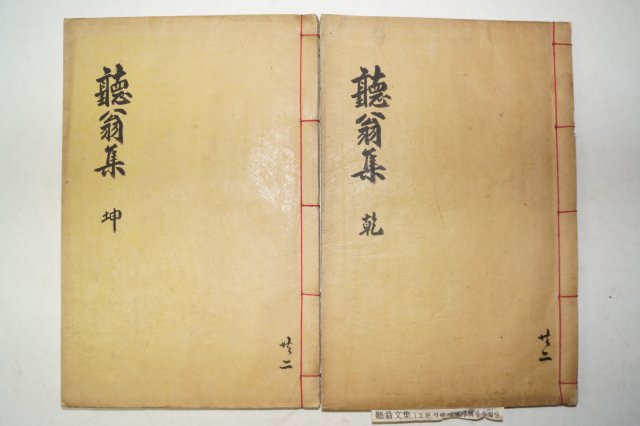 聽翁集 乾
共二
聽翁集 坤
共二
聽翁文集.1.2권.